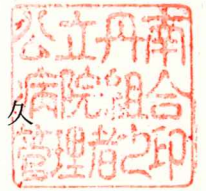 公立丹南
病院組合
管理者之印
久